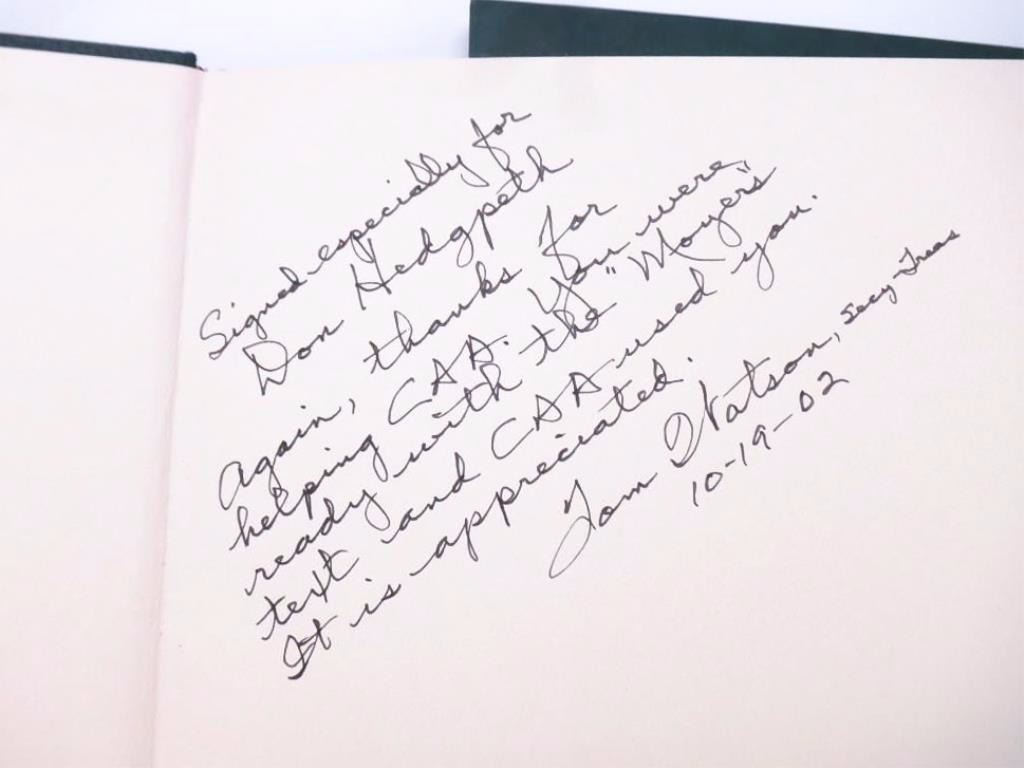 Signed especially for
Don Hedgpeth
Again, thanks for
helping CAA. You were
ready with the "Moyers"
text and CAA used you.
It is appreciated.
Tom Watson, Secy-Treas
10-19-02